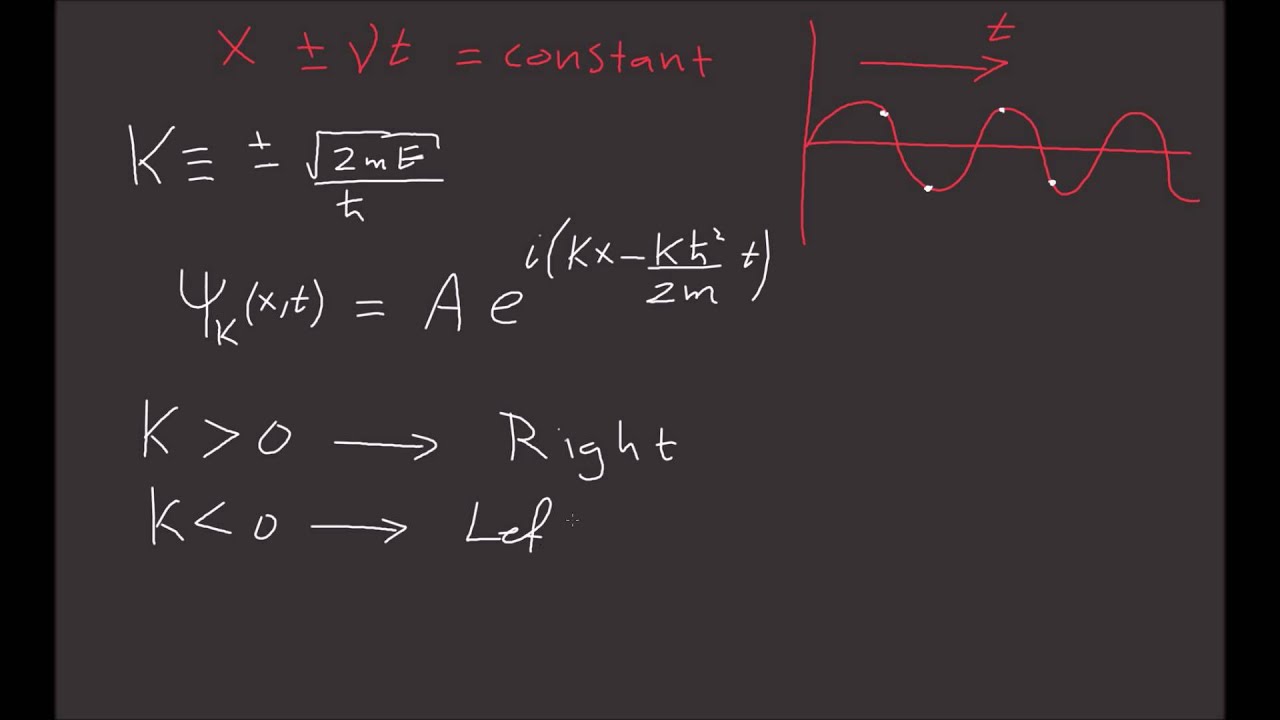 x ± vt = constant
t
K ≡ ± √(2mE) / ħ
Ψ_K(x,t) = A e^{i(Kx − (Kħ²/2m) t)}
K > 0 → Right
K < 0 → Lef